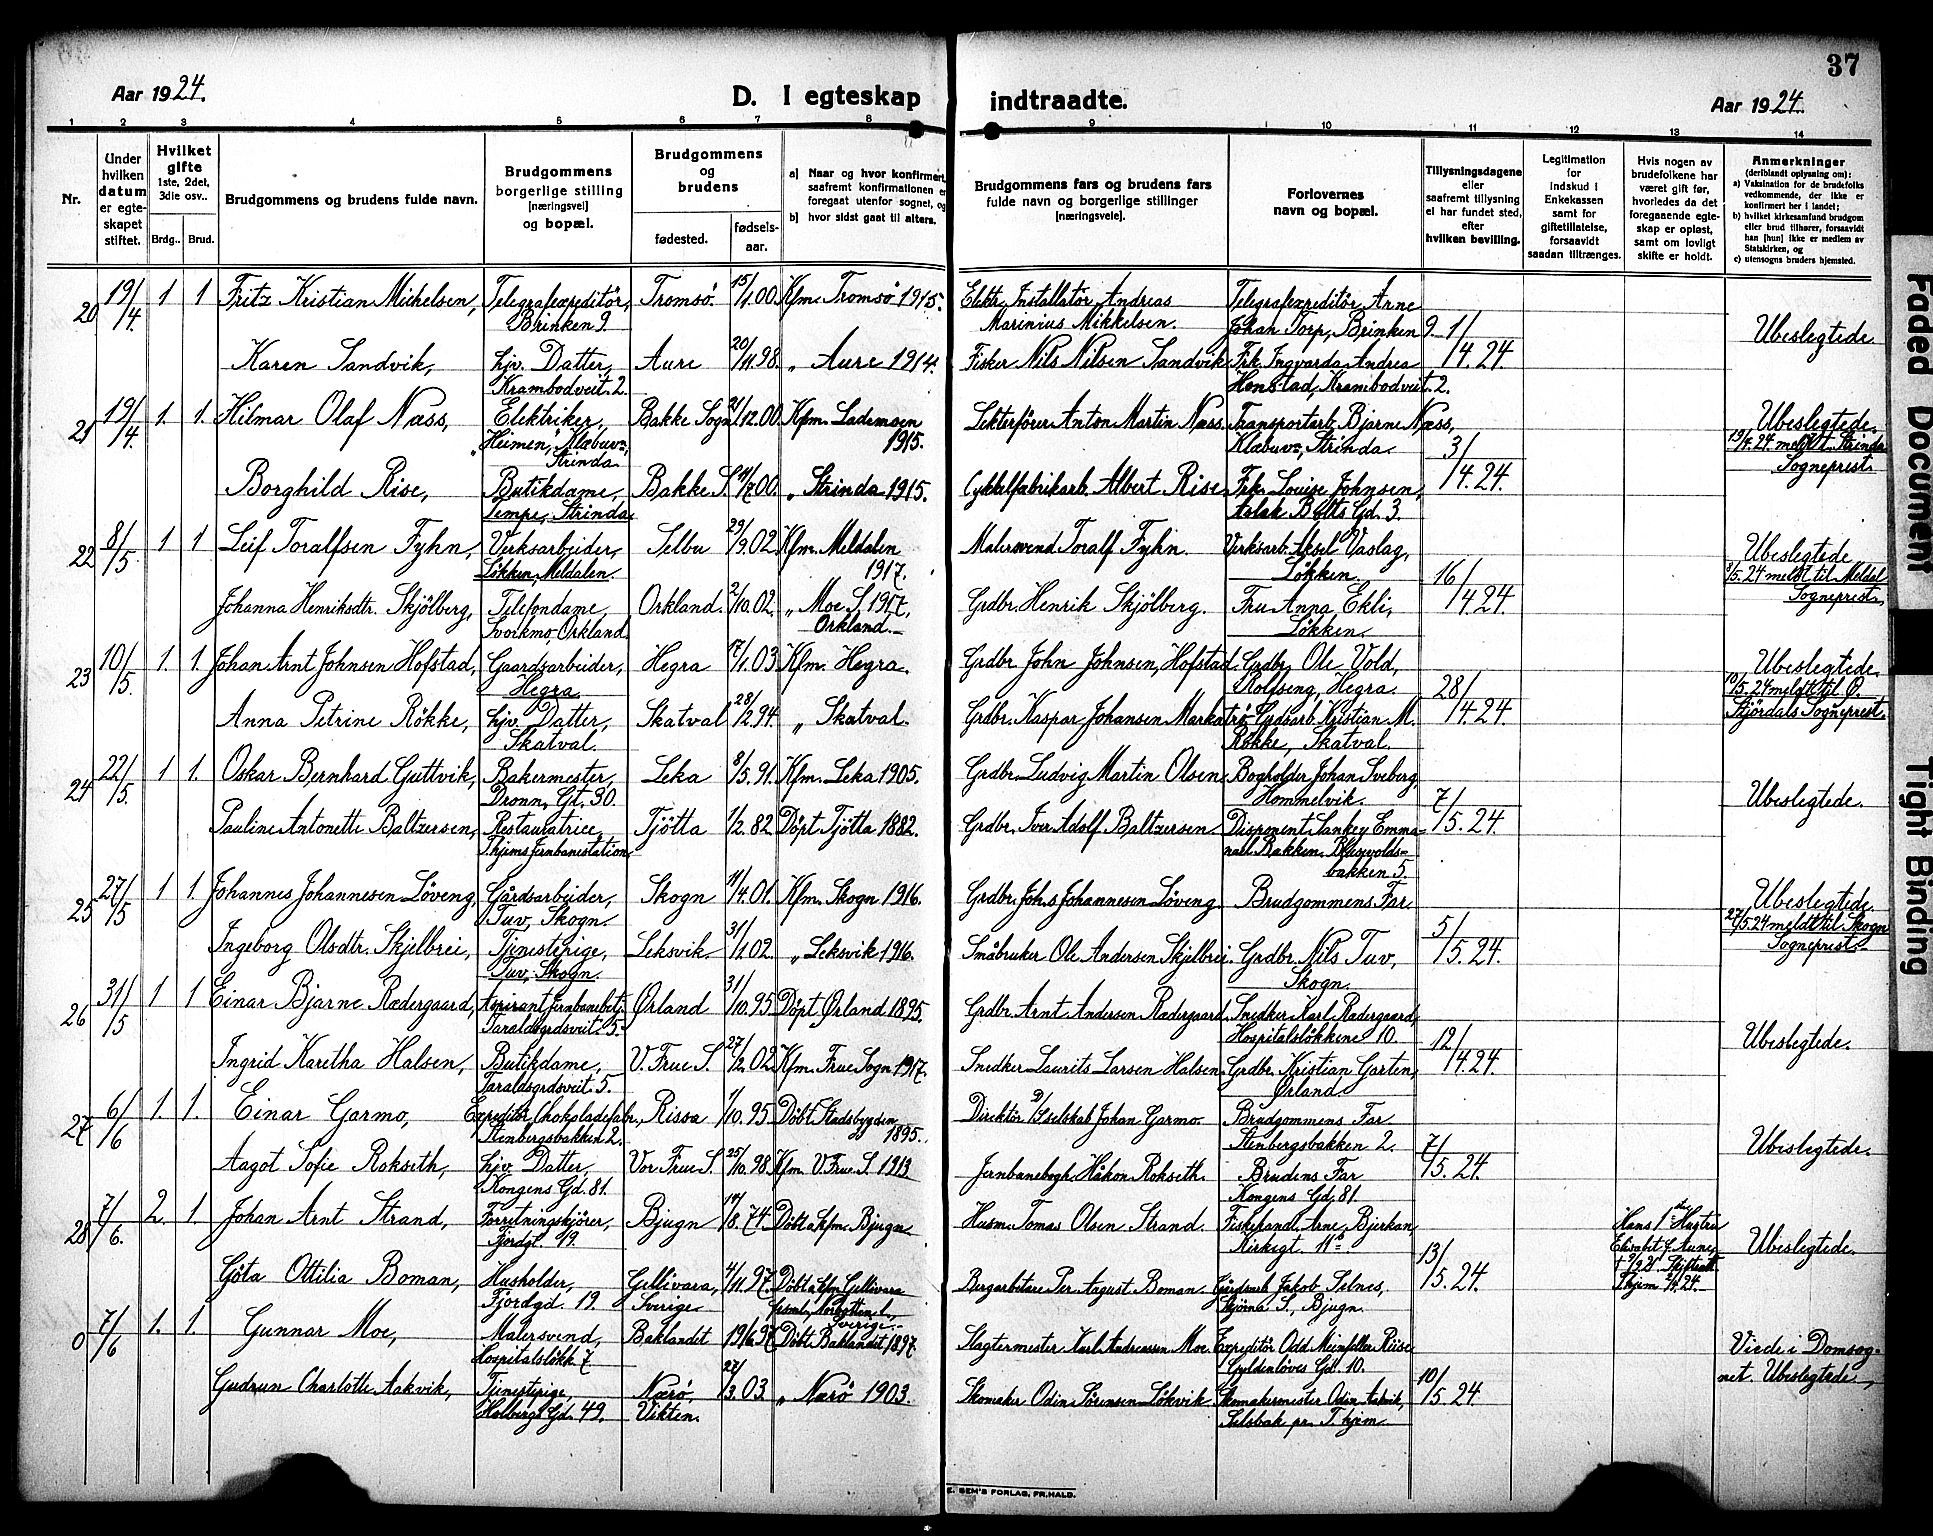 37
Aar 1924.
D. I egteskap indtraadte.
Aar 1924.
1 2 3 4 5 6 7 8 9 10 11 12 13 14
Nr.
Under hvilken datum er egteskapet stiftet.
Hvilket gifte 1ste, 2det, 3die osv..
Brdg.. Brud.
Brudgommens og brudens fulde navn.
Brudgommens borgerlige stilling [næringsvei] og bopæl.
Brudgommens og brudens
fødested.
fødselsaar.
a) Naar og hvor konfirmert, saafremt konfirmationen er foregaat utenfor sognet, og
b) hvor sidst gaat til alters.
Brudgommens fars og brudens fars fulde navn og borgerlige stillinger [næringsveie].
Forlovernes navn og bopæl.
Tillysningsdagene eller saafremt tillysning ei har fundet sted, efter hvilken bevilling.
Legitimation for indskud i Enkekassen samt for giftetillatelse, forsaavidt saadan tiltrænges.
Hvis nogen av brudefolkene har været gift før, hvorledes da det foregaaende egteskap er opløst, samt om lovligt skifte er holdt.
Anmerkninger (deriblandt oplysning om):
a) Vaksination for de brudefolks vedkommende, der ikke er konfirmert her i landet;
b) hvilket kirkesamfund brudgom eller brud tilhører, forsaavidt han [hun] ikke er medlem av Statskirken, og
c) utensogns bruders hjemsted.
20 19/4 1 1 Fritz Kristian Michelsen, Telegrafexpeditör, Brinken 9. Tromsö. 15/1.00 Kfm. Tromsö 1915. Elektr. Installatör Andreas Marinius Mikkelsen. Telegrafexpeditör Arne Johan Torp, Brinken 9. 1/4.24. Ubeslegtede
Karen Sandvik, hjv. Datter, Krambodveit. 2. Aure 20/11.98. „ Aure 1914. Fisker Nils Nilsen Sandvik Frk. Ingvarda Andrea Henstad, Krambodveit. 2.
21 19/4 1. 1. Hilmar Olaf Næss, Elektriker, "Heimen", Klæbuv., Strinda Bakke Sogn 21/12.00 Kfm. Lademoen 1915. Lekterförer Anton Martin Næss. Transportarb. Bjarne Næss, Klæbuv., Strinda. 3/4.24. Ubeslegtede. 19/4.24 meldt Strinda Sogneprest.
Borghild Rise, Butikdame, Tempe, Strinda. Bakke S. 14/7.00. „ Strinda 1915. Cykkelfabrikarb. Albert Rise. Frk. Louise Johnsen, Aslak Bolts Gd. 3.
22 8/5 1 1 Leif Toralfsen Fyhn, Verksarbeider, Løkken, Meldalen. Selbu 29/9.02 Kfm. Meldalen 1917. Malersvend Toralf Fyhn. Verksarb. Aksel Vaslag, Løkken. 16/4.24. Ubeslegtede 8/5.24 meldt til Meldal Sogneprest.
Johanna Henriksdtr. Skjölberg, Telefondame, Svorkmo-Orkland Orkland. 2/10.02. „ Moe S. 1917, Orkland. Grdbr. Henrik Skjölberg. Fru Anna Ekli, Løkken.
23 10/5. 1. 1. Johan Arnt Johnsen Hofstad, Gaardsarbeider, Hegra Hegra 17/1.03 Kfm. Hegra. Grdbr. John Johnsen, Hofstad. Grdbr. Ole Vold, Rolfseng, Hegra. 28/4.24. Ubeslegtede. 10/5.24 meldt til Ö. Stjördals Sogneprest.
Anna Petrine Rökke, hjv. Datter, Skatval. Skatval 28/2.94. „ Skatval. Grdbr. Kaspar Johansen Markatrö. Gydsarb. Kristian M. Røkke, Skatval.
24 22/5. 1 1. Oskar Bernhard Guttvik, Bakermester, Dronn. Gt. 30. Leka 8/5.91. Kfm. Leka 1905. Grdbr. Ludvig Martin Olsen Bogholder Johan Sveberg, Hommelvik. 7/5.24. Ubeslegtede.
Pauline Antonette Baltzersen, Restauratrice, T.hjems Jernbanestation Tjötta 1/2.82. Döpt Tjötta 1882. Grdbr. Iver Adolf Baltzersen Disponent Sankey Emmanuel Bakken, bakken 5.
25 27/5 1 1. Johannes Johannesen Löveng, Gårdsarbeider, Tuv, Skogn. Skogn 11/4.01. Kfm. Skogn 1916. Grdbr. Johs Johannesen Löveng. Brudgommens Far 5/5.24. Ubeslegtede. 27/5.24 meldt til Skogn Sogneprest.
Ingeborg Olsdtr. Skjelbrei, Tjenestepige, Tuv, Skogn. Leksvik 31/1.02. „ Leksvik 1916. Småbruker Ole Andersen Skjelbrei. Grdbr. Nils Tuv, Skogn.
26 31/5 1 1 Einar Bjarne Rædergaard, Aspirant Jernbanebetj. Taraldsgrdsveit 5. Ørland 31/10.95 Döpt Ørland 1895. Grdbr. Arnt Andersen Rædergaard. Snedker Karl Rædergaard, Hospitalslökkene 10. 12/4.24. Ubeslegtede.
Ingrid Karetha Halsen, Butikdame, Taraldsgrdsveit. 5. V. Frue S. 27/2.02 Kfm. Frue Sogn 1917. Snedker Laurits Larsen Halsen. Grdbr. Kristian Garten, Ørland.
27 6/6 1. 1. Einar Garmo, Expeditör, Chokoladefabr., Stenbergsbakken 2. Rissa 1/10.95 Döbt Stadsbygden 1895. Direktör D/Sselskab Johan Garmo. Brudgommens Far Stenbergsbakken 2. 7/5.24. Ubeslegtede.
Aagot Sofie Rokseth, hjv. Datter, Kongens Gd. 81. Vor Frue S. 25/10.98 Kfm. V. Frue S. 1913 Jernbanebogh. Håkon Rokseth. Brudens Far Kongens Gd. 81.
28 7/6. 2. 1. Johan Arnt Strand, Forretningskjörer, Fjordgt. 19. Bjugn 14/8.74 Döbt & kfm. Bjugn Husm. Tomas Olsen Strand. Fiskehandl. Arne Bjerkan, Kirkegt. 11b 13/5.24. Hans 1ste Hustru Elisabet f. Aune, † 9/9.21. Skifteatt. T.hjem 2/4.24. Ubeslegtede.
Göta Ottilia Boman, Husholder, Fjordgd. 19. Gellivara, Sverige 4/11.97. Döbt & kfm. Gellivara forsml., Norbotten l., Sverige. Bergarbetare Per August Boman. Gårdsarb. Jakob Selnes, Stjörna S., Bjugn.
0 7/6 1. 1. Gunnar Moe, Malersvend, Hospitalslökk. 7 Baklandet 19/6.97 Döbt Baklandet 1897. Slagtermester Karl Andreassen Moe. Expeditör Odd Meinfelder Riise Gyldenløves Gd. 10. 10/5.24. Viede i Domsognet. Ubeslegtede.
Gudrun Charlotte Aakvik, Tjenestepige, Holbergs Gd. 49. Nærö, Vikten. 27/3.03. „ Nærö 1903. Skomaker Odin Sörensen Lökvik Skomakermester Odin Aakvik, Selsbak pr. T.hjem.
E. SEM'S FORLAG, FR.HALD.
Faded Document
Tight Binding